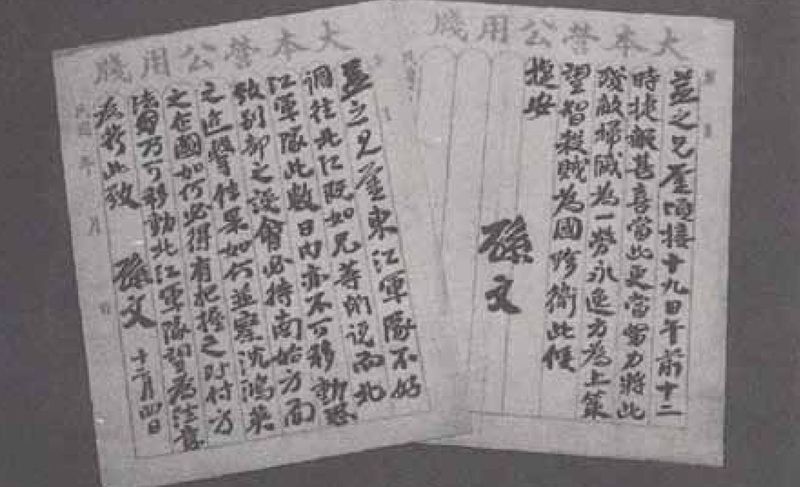 大本營公用牋
益之兄鑒頃接十九日午前十二
時捷報甚喜當此更當努力將此
殘敵掃滅為一勞永逸方為上策
望殺賊為國珍衛此候
捷安
孫文
大本營公用牋
益之兄鑒東江軍隊不好
調往北江既如兄等所說而北
江軍隊此數日內亦不可移動恐
致別部之誤會必待南始方面
之近警結果如何並察沈鴻英
之企圖如何必得有把握之對付方
法乃可移動北江軍隊望為注意
為荷此致
孫文 十二月四日
民國 年 月